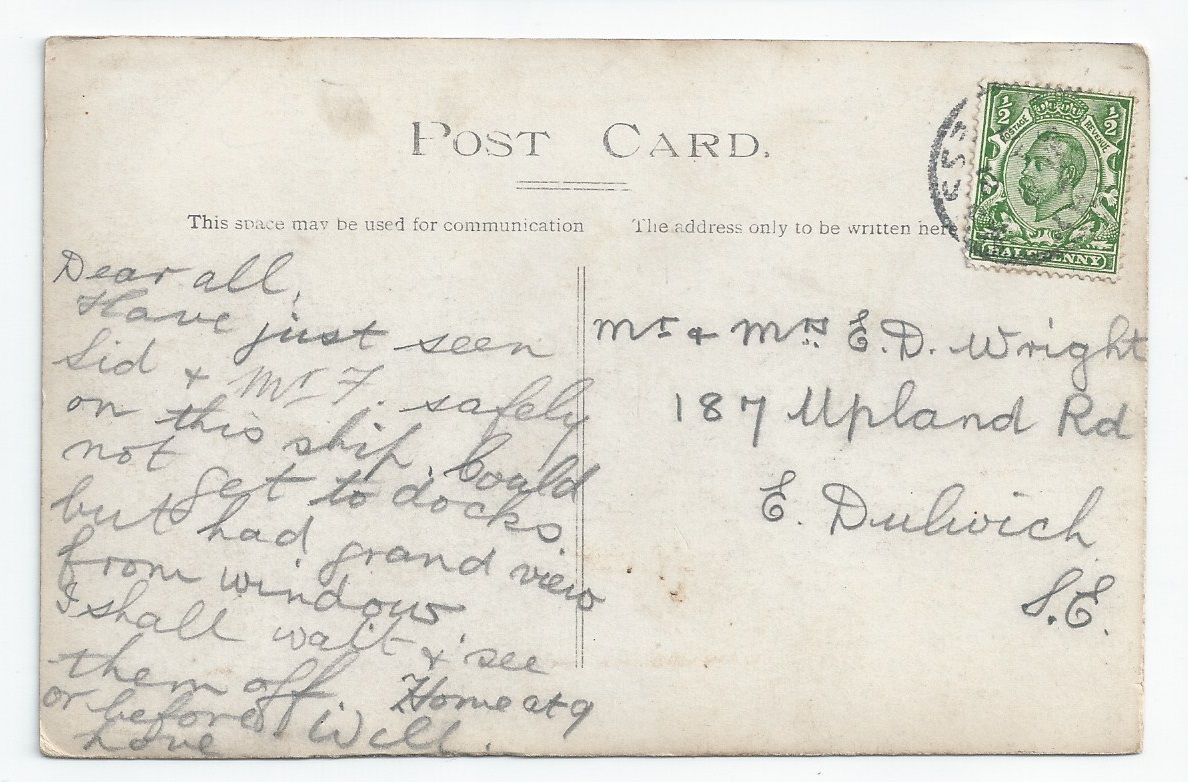 POST CARD.
This space may be used for communication
The address only to be written here
½ ½
POSTAGE REVENUE
HALFPENNY
Dear all,
Have just seen
Sid & Mr F. safely
on this ship. Could
not get to docks.
but had grand view
from window.
I shall wait & see
them off. Home at 9
or before Will.
Love
Mr & Mrs E.D. Wright
187 Upland Rd
E. Dulwich
S.E.